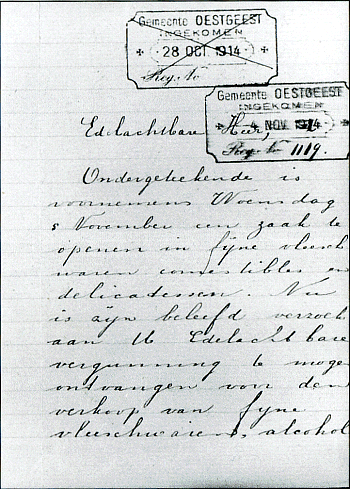 Gemeente OESTGEEST
INGEKOMEN
28 OCT. 1914
Reg. No
Gemeente OESTGEEST
INGEKOMEN
4 NOV 1914
Reg. No 1119.
Edelachtbare Heer,
Ondergeteekende is
voornemens Woensdag
5 November een zaak te
openen in fijne vleesch
waren comestibles en
delicatessen. Nu
is zijn beleefd verzoek
aan U Edelachtbare
vergunning te mogen
ontvangen voor den
verkoop van fijne
vleeschwaren, alcohol